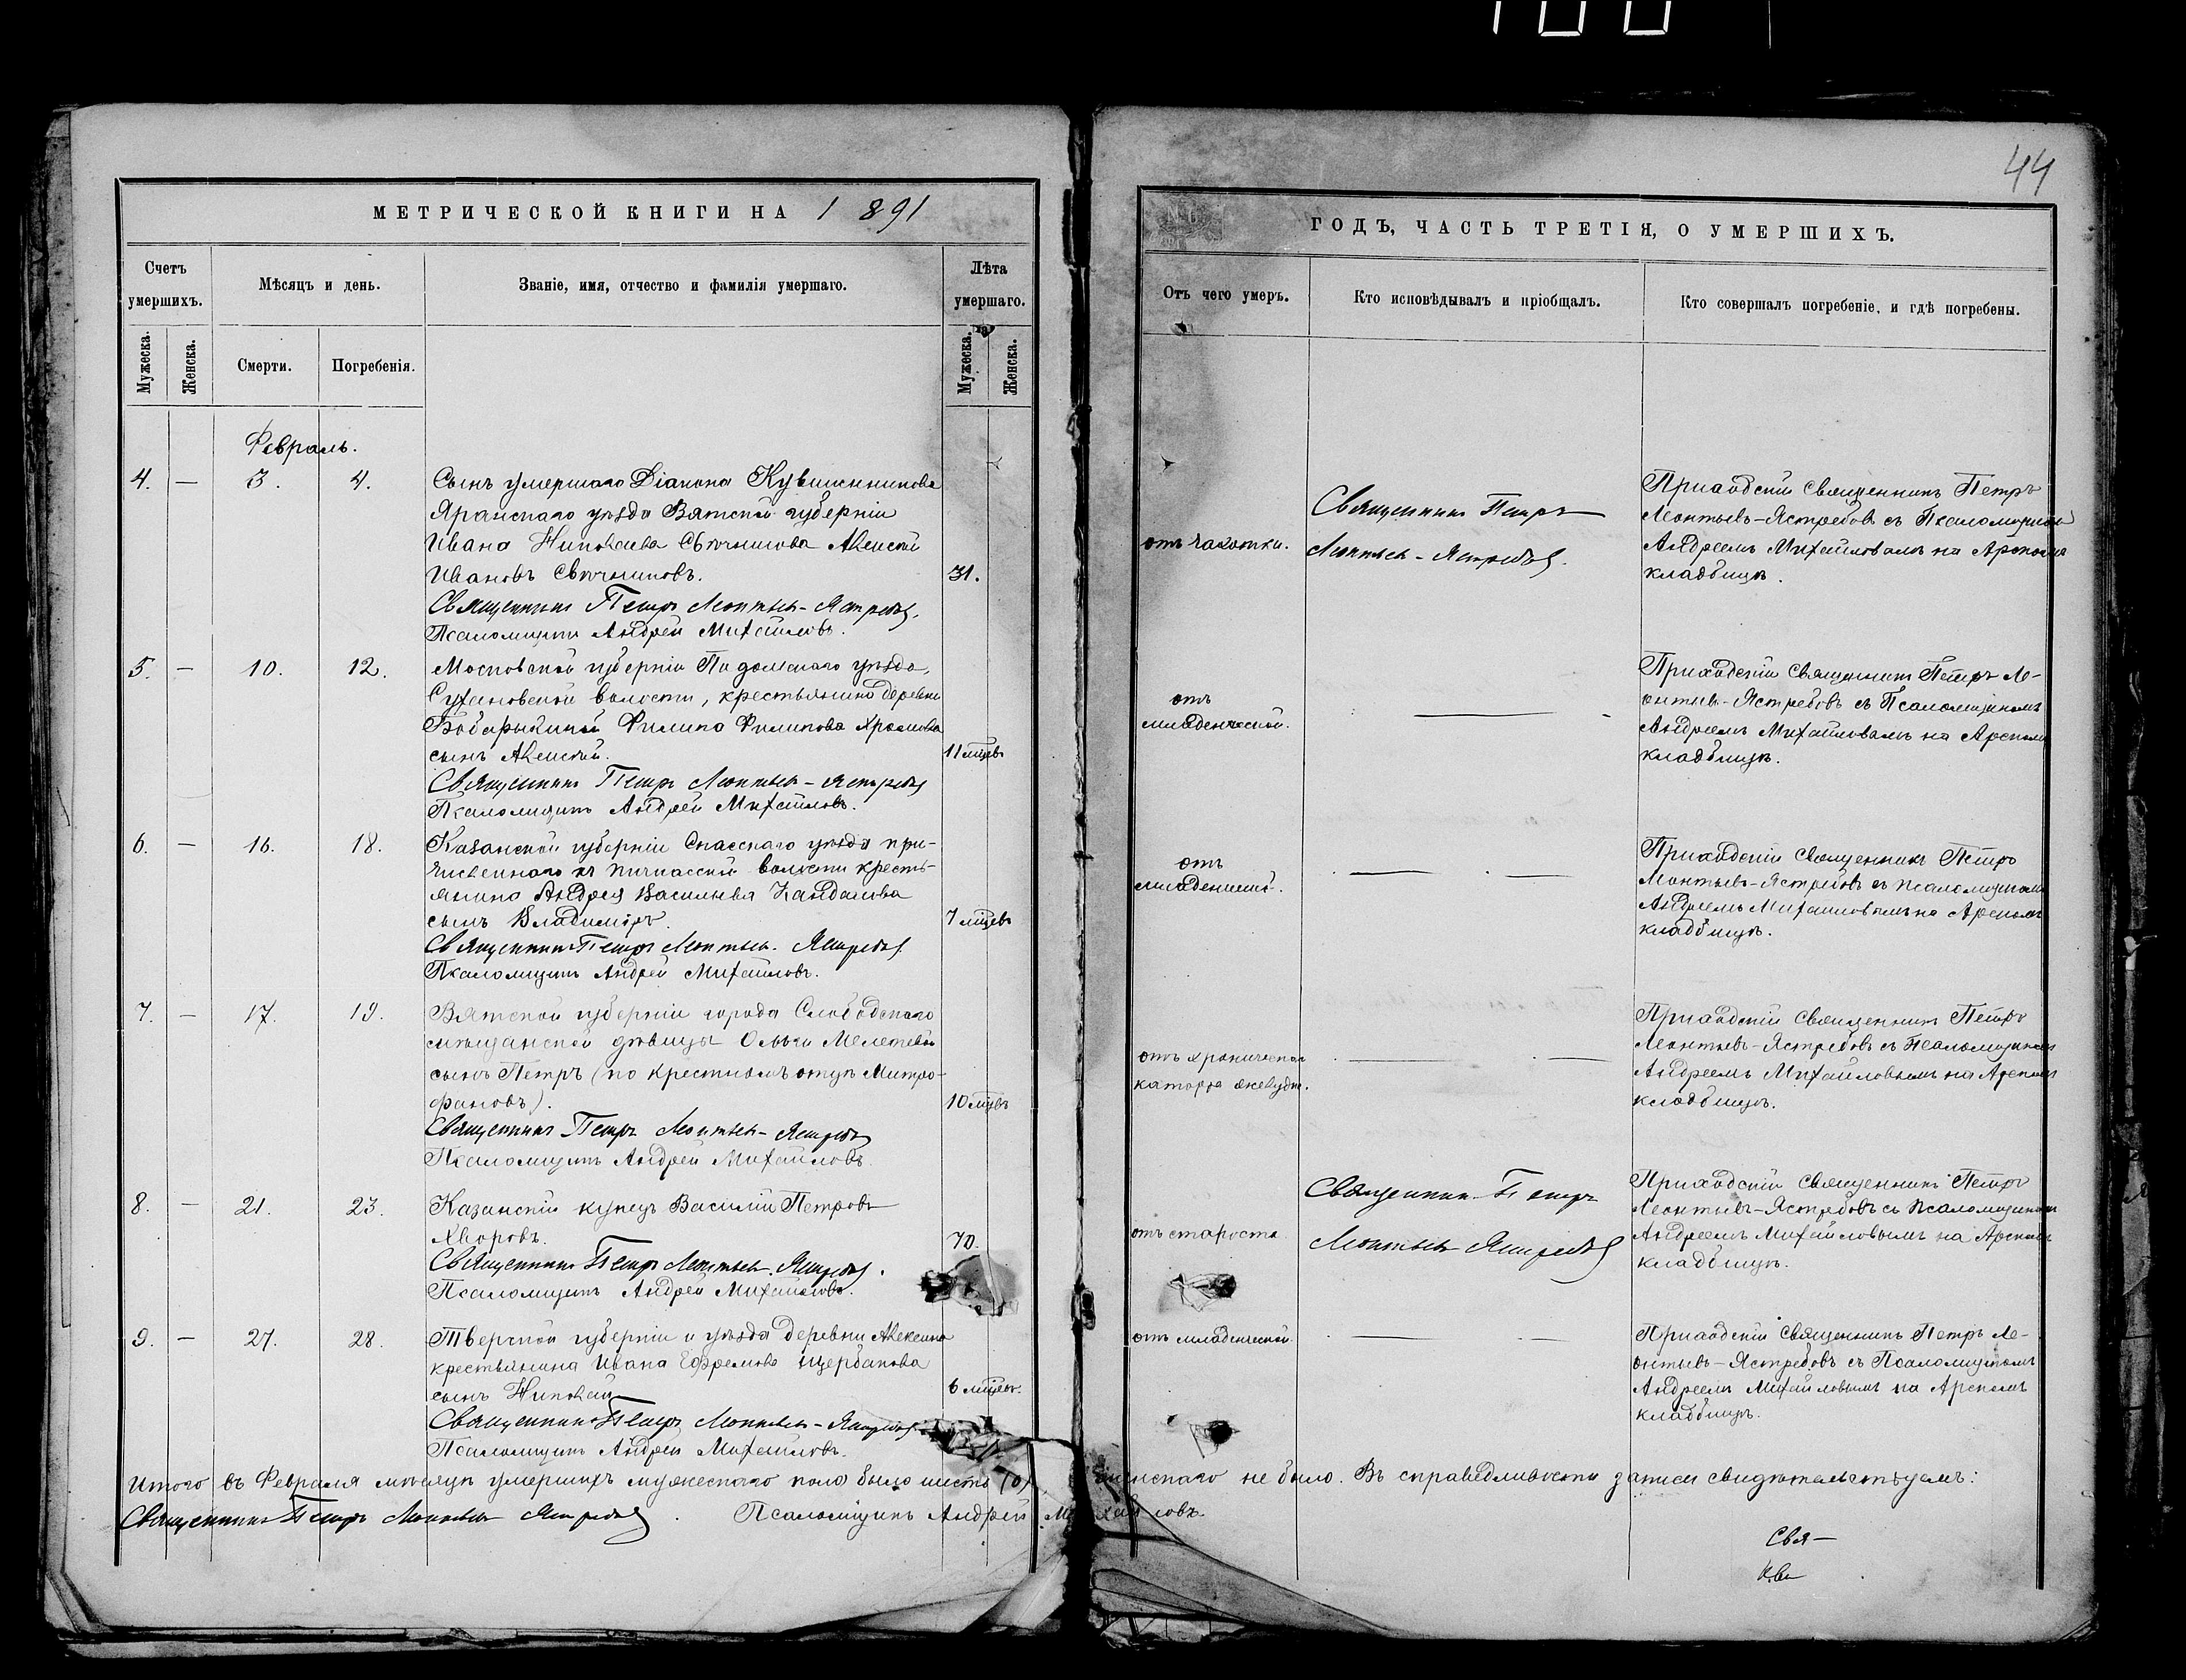 44
МЕТРИЧЕСКОЙ КНИГИ НА 1891
ГОДЪ, ЧАСТЬ ТРЕТІЯ, О УМЕРШИХЪ.
Счетъ умершихъ.
Мѣсяцъ и день.
Званіе, имя, отчество и фамилія умершаго.
Лѣта умершаго.
Отъ чего умеръ.
Кто исповѣдывалъ и пріобщалъ.
Кто совершалъ погребеніе, и гдѣ погребены.
Мужеска.
Женска.
Смерти.
Погребенія.
Мужеска.
Женска.
Февраль.
4. — 3. 4.
Сынъ умершаго Діакона
Яранскаго уѣзда Вятской губерніи
Ивана Николаева Свѣчникова Алексѣй
Ивановъ Свѣчниковъ.
31.
Священникъ Петръ Леонтьев-Ястребов.
Псаломщикъ Андрей Михайловъ.
отъ чахотки.
Священникъ Петръ
Леонтьев-Ястребов.
Приходскій священникъ Петръ
Леонтьевъ-Ястребовъ съ Псаломщикомъ
Андреемъ Михайловымъ на Арскомъ
кладбищѣ.
5. — 10. 12.
Московской губерніи Подольскаго уѣзда,
Сухановской волости, крестьянина деревни
Филипа Филипова
сынъ Алексѣй.
11 мѣсцевъ
Священникъ Петръ Леонтьев-Ястребов
Псаломщикъ Андрей Михайловъ.
отъ
младенческой.
Приходскій священникъ Петръ Ле-
онтьев-Ястребовъ съ Псаломщикомъ
Андреемъ Михайловымъ на Арском
кладбищѣ.
6. — 16. 18.
Казанской губерніи Спасскаго уѣзда при-
численнаго къ волости кресть-
янина Андрея Васильева
сынъ Владиміръ.
7 мѣсцевъ
Священникъ Петръ Леонтьев-Ястребов
Псаломщикъ Андрей Михайловъ.
отъ
Приходскій священникъ Петръ
Леонтьевъ-Ястребовъ съ псаломщикомъ
Андреемъ Михайловымъ на Арскомъ
кладбищѣ.
7. — 17. 19.
Вятской губерніи города Слободскаго
мѣщанской дѣвицы Ольги
сынъ Петръ (по крестномъ отцѣ Митро-
фановъ).
10 мѣсцевъ
Священникъ Петръ Леонтьев-Ястребов
Псаломщикъ Андрей Михайловъ.
отъ хроническаго
катарра желудк.
Приходскій священникъ Петръ
Леонтьевъ-Ястребовъ съ Псаломщикомъ
Андреемъ Михайловымъ на Арскомъ
кладбищѣ.
8. — 21. 23.
Казанскій купецъ Василій Петровъ
Хворовъ.
70.
Священникъ Петръ Леонтьев-Ястребов.
Псаломщикъ Андрей Михайловъ.
отъ старости
Священникъ Петръ
Леонтьев Ястребов
Приходскій священникъ Петръ
Леонтьевъ-Ястребовъ съ Псаломщикомъ
Андреемъ Михайловымъ на Арскомъ
кладбищѣ.
9. — 27. 28.
Тверской губерніи и уѣзда деревни
крестьянина Ивана Ефремова Щербакова
сынъ Николай
6 мѣсцев.
Священникъ Петръ Леонтьев-Ястребов
Псаломщикъ Андрей Михайловъ.
отъ младенческой.
Приходскій священникъ Петръ Ле-
онтьевъ-Ястребовъ съ Псаломщикомъ
Андреемъ Михайловымъ на Арскомъ
кладбищѣ.
Итого въ Февраля мѣсяцѣ умершихъ мужескаго пола было шесть (6) женскаго не было. Въ справедливости записи свидѣтельствуемъ:
Священникъ Петръ Леонтьев Ястребов. Псаломщикъ Андрей Михайловъ.
Свя-